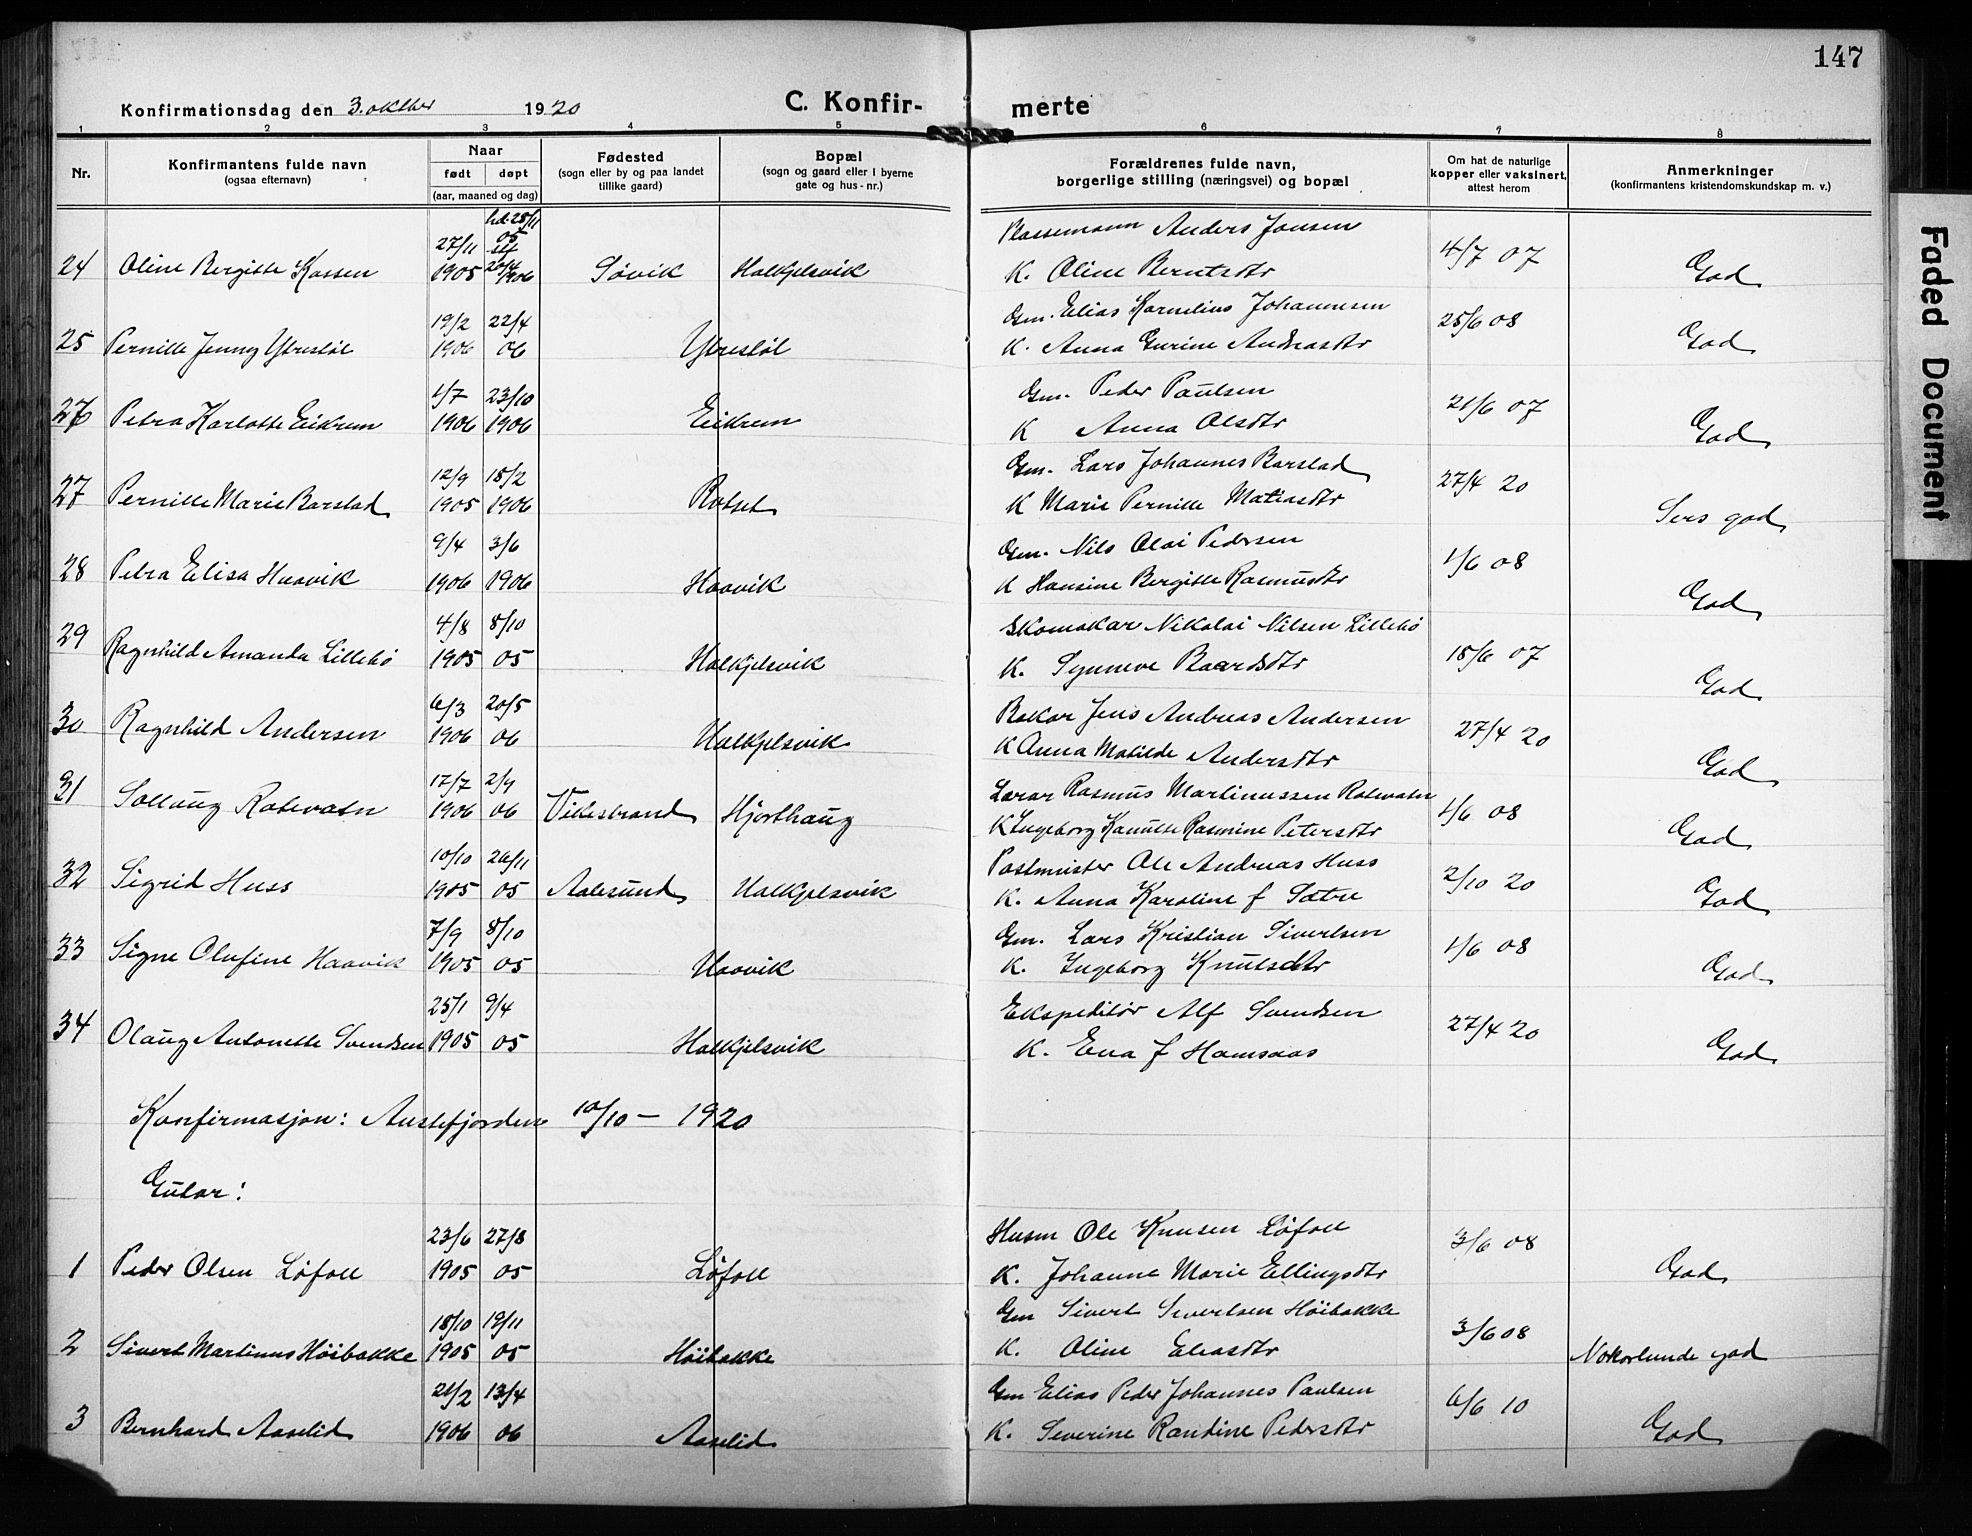 147
Konfirmationsdag den 3. oktber 1920
C. Konfir- merte
1 2 3 4 5 6 7 8
Nr.
Konfirmantens fulde navn
(ogsaa efternavn)
Naar
født døpt
(aar, maaned og dag)
Fødested
(sogn eller by og paa landet
tillike gaard)
Bopæl
(sogn og gaard eller i byerne
gate og hus-nr.)
Forældrenes fulde navn,
borgerlige stilling (næringsvei) og bopæl
Om hat de naturlige
kopper eller vaksinert,
attest herom
Anmerkninger
(konfirmantens kristendomskundskap m. v.)
hd. 28/11
27/11 05 Anders Jonsen
24 Oline Bergitte Kossen 1905 20/4 1906 Søvik Halkjelsvik K. Oline Berntsdtr 4/7 07 God
19/2 22/4 Gm. Elias Kornelius Johannesen
25 Pernille Jenny Ytresløl 1906 06 Ytresløl K. Anna Gurine Andreasdtr 25/6 08 God
1/7 23/10 Gm. Peder Paulsen
26 Petra Karlotte Eikrem 1906 1906 Eikrem K Anna Olsdtr 21/6 07 God
12/9 18/2 Gm. Lars Johannes Barstad
27 Pernille Marie Barstad 1905 1906 Rotset K Marie Pernille Matiasdtr 27/4 20 Sers god
9/4 3/6 Gm. Nils Olai Pedersen
28 Petra Elisa Haavik 1906 1906 Haavik K Hansine Bergitte Rasmusdtr 1/6 08 God
4/8 8/10 Skomakar Nikolai Nilsen Lillebø
29 Ragnhild Amanda Lillebø 1905 05 Halkjelsvik K. Synneve Baardsdtr 18/6 07 God
6/3 20/5 Bakar Jens Andreas Andersen
30 Ragnhild Andersen 1906 06 Halkjelsvik K Anna Matilde Andersdtr 27/4 20 God
17/7 2/9 Lærar Rasmus Martinussen Rotevatn
31 Sollaug Rotevatn 1906 06 Vikestrand Hjorthaug K Ingeborg Kanutte Rasmine Petersdtr 1/6 08 God
10/10 26/11 Postmester Ole Andreas Huss
32 Sigrid Huss 1905 05 Aalesund Halkjelsvik K. Anna Karoline f Sætre 2/10 20 God
7/9 8/10 Gm. Lars Kristian Sivertsen
33 Signe Olufine Haavik 1905 05 Haavik K. Ingeborg Knutsdtr 1/6 08 God
25/1 9/4 Ekspeditør Alf Svendsen
34 Olaug Antonette Svendsen 1905 05 Halkjelsvik K. Ena f Hamsaas 27/4 20 God
Konfirmasjon: Austefjorden 10/10 – 1920
Gutar:
23/6 27/8 Husm Ole Knusen Løfoll
1 Peder Olsen Løfoll 1905 05 Løfoll K. Johanne Marie Ellingsdtr 3/6 08 God
18/10 19/11 Gm Sivert Sivertsen Høibakke
2 Sivert Martinus Høibakke 1905 05 Høibakke K. Oline Eliasdtr 3/6 08 Nokorlunde god
21/2 13/4 Gm Elias Peder Johannes Paulsen
3 Bernhard Aaselid 1906 06 Aaselid K. Severine Randine Pedersdtr 6/6 10 God
Faded Document